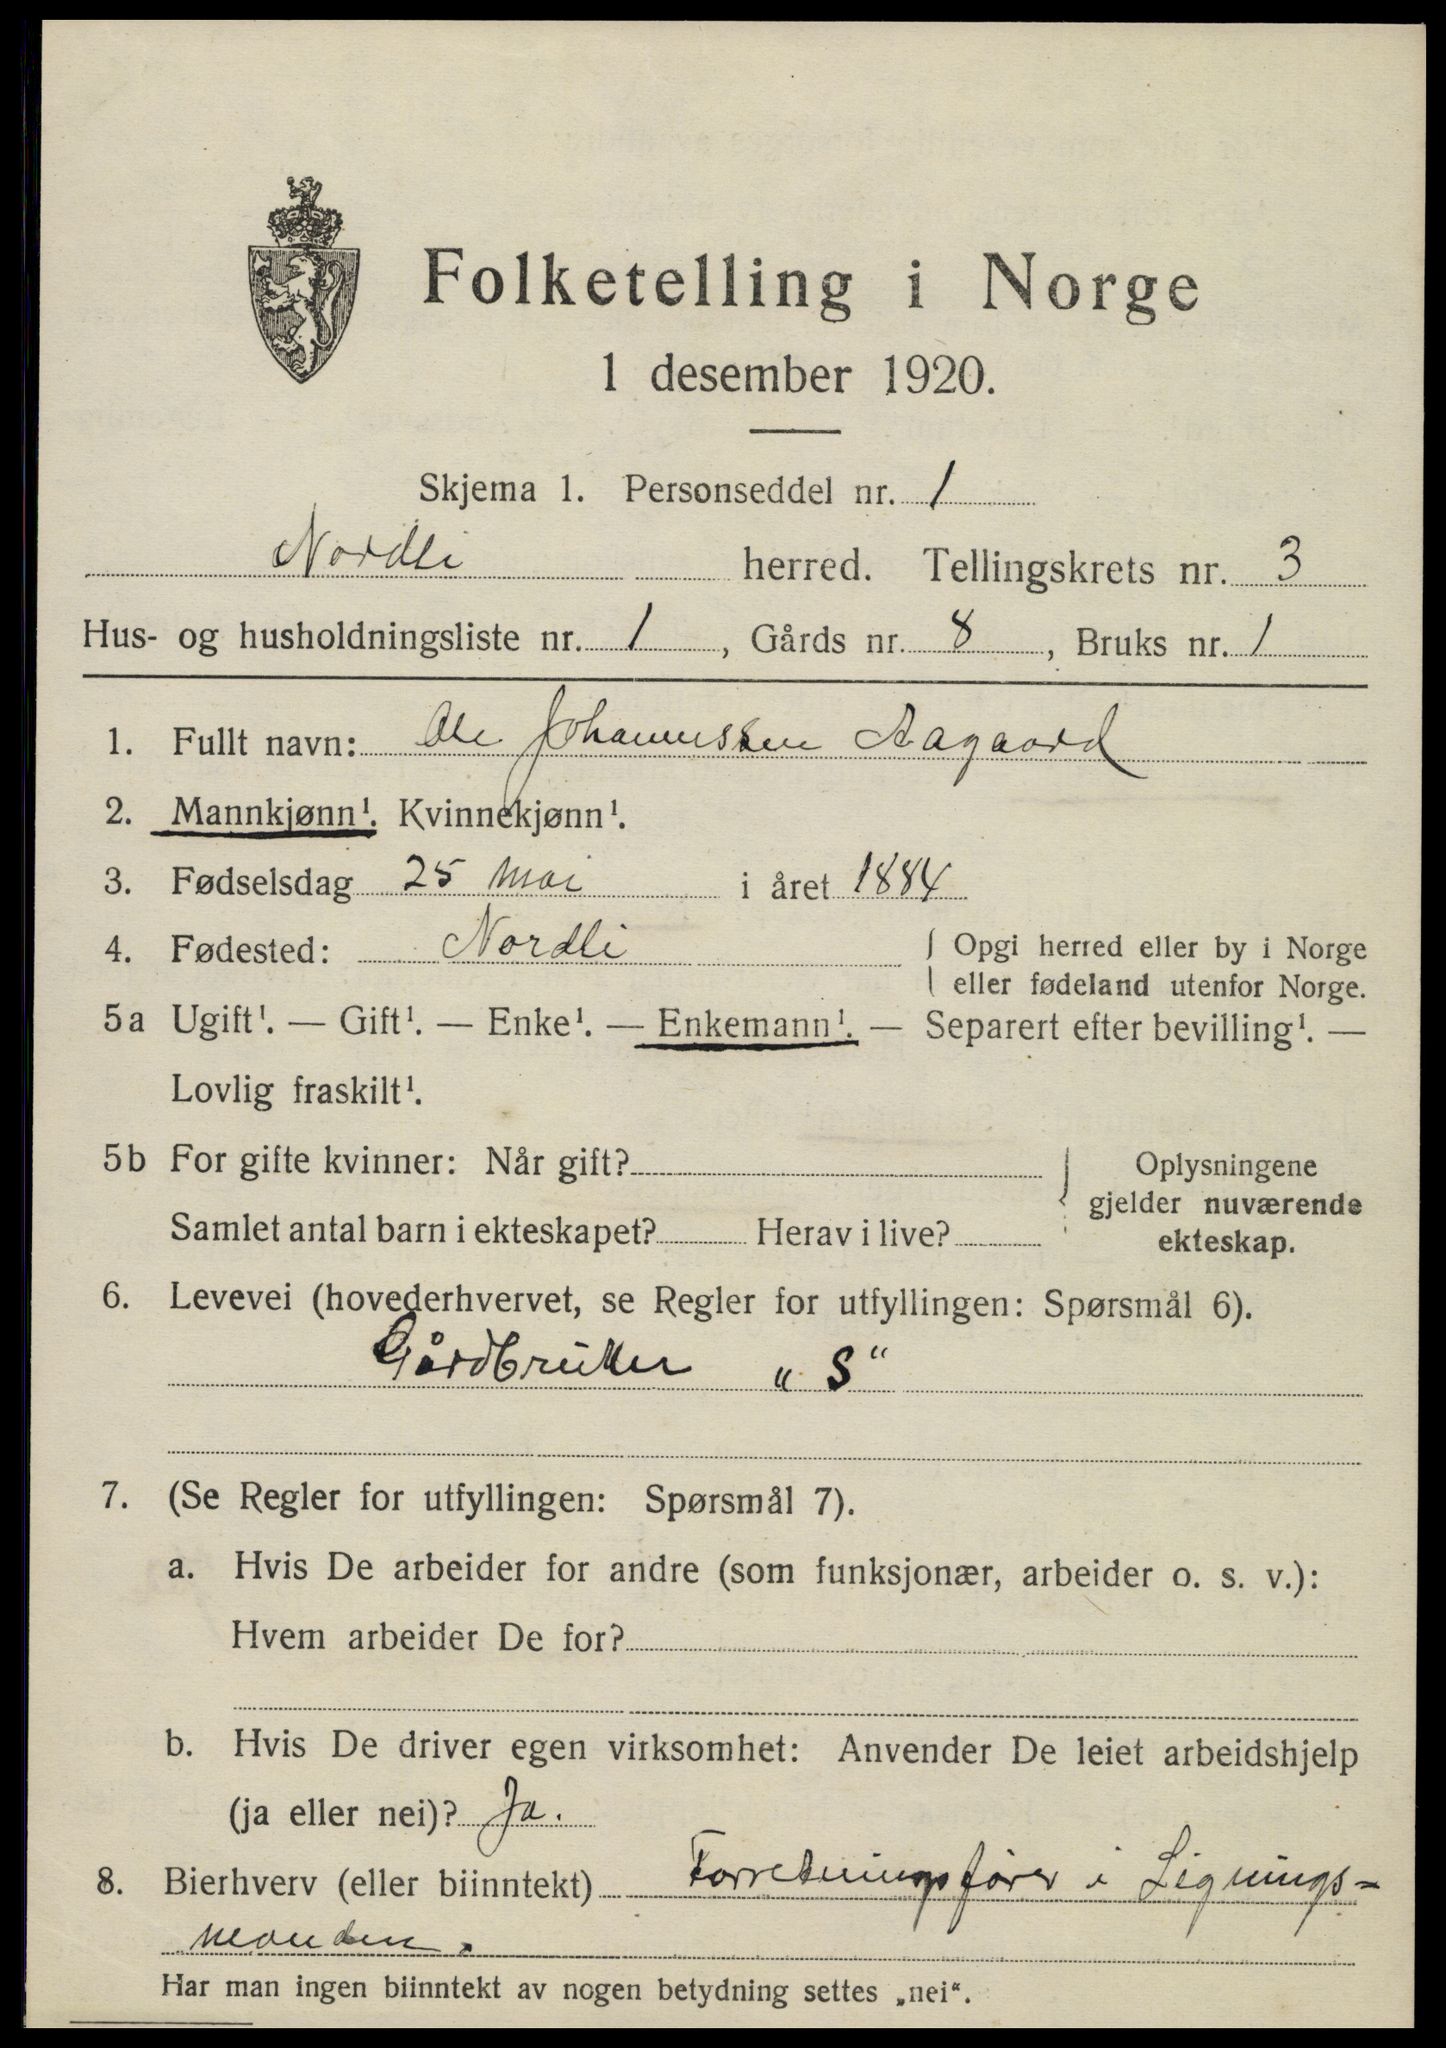 Folketelling i Norge
1 desember 1920.
Skjema 1. Personseddel nr. 1
Nordli herred. Tellingskrets nr. 3
Hus- og husholdningsliste nr. 1, Gårds nr. 8, Bruks nr. 1
1. Fullt navn: Ole Johannessen Aagaard
2. Mannkjønn¹. Kvinnekjønn¹.
3. Fødselsdag 25 mai i året 1884
4. Fødested: Nordli { Opgi herred eller by i Norge
eller fødeland utenfor Norge.
5a Ugift¹. — Gift¹. — Enke¹. — Enkemann¹. — Separert efter bevilling¹. —
Lovlig fraskilt¹.
5b For gifte kvinner: Når gift?
Samlet antal barn i ekteskapet? Herav i live?
} Oplysningene
gjelder nuværende
ekteskap.
6. Levevei (hovederhvervet, se Regler for utfyllingen: Spørsmål 6).
Gårdbruker „S“
7. (Se Regler for utfyllingen: Spørsmål 7).
a. Hvis De arbeider for andre (som funksjonær, arbeider o. s. v.):
Hvem arbeider De for?
b. Hvis De driver egen virksomhet: Anvender De leiet arbeidshjelp
(ja eller nei)? Ja.
8. Bierhverv (eller biinntekt) Forretningsfører i Lignings-
Har man ingen biinntekt av nogen betydning settes „nei“.